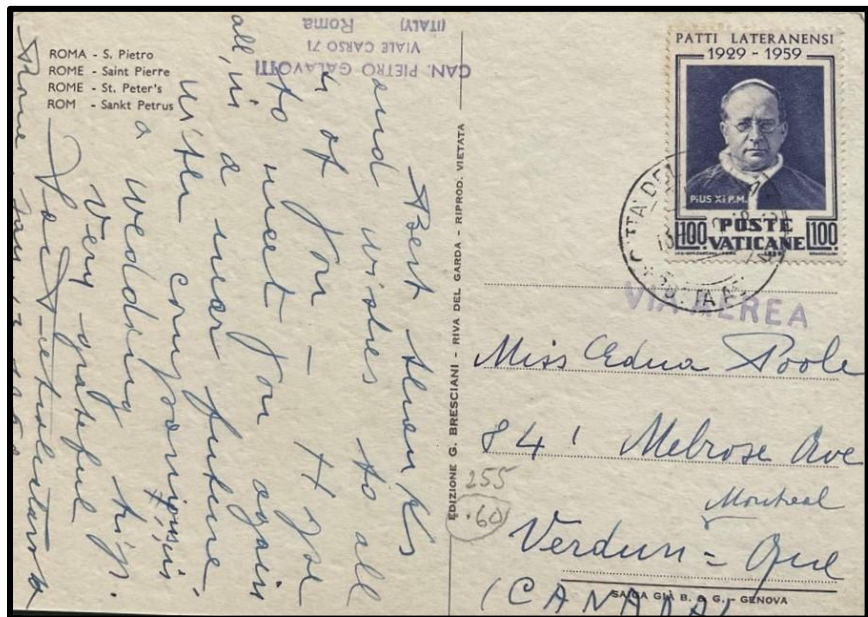 ROMA - S. Pietro
ROME - Saint Pierre
ROME - St. Peter's
ROM - Sankt Petrus
CAN. PIETRO GALAVOTTI
VIALE CARSO 71
Roma
(ITALY)
Best thanks
and wishes to all
of you - Hope
to meet you again
all, in a near future,
with companions, in
a wedding trip.
Very grateful
Rome
EDIZIONE G. BRESCIANI - RIVA DEL GARDA - RIPROD. VIETATA
PATTI LATERANENSI
1929 - 1959
PIUS XI P.M.
POSTE
100 VATICANE 100
CITTA DEL
VIA AEREA
Miss Edna Poole
841 Melrose Ave
Montreal
Verdun = Que
(CANADA)
255
.60
SAIGA GIÀ B. & G. - GENOVA